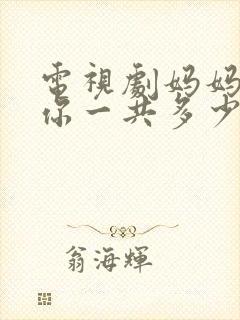 電視劇妈妈
你一共多少
翁海輝